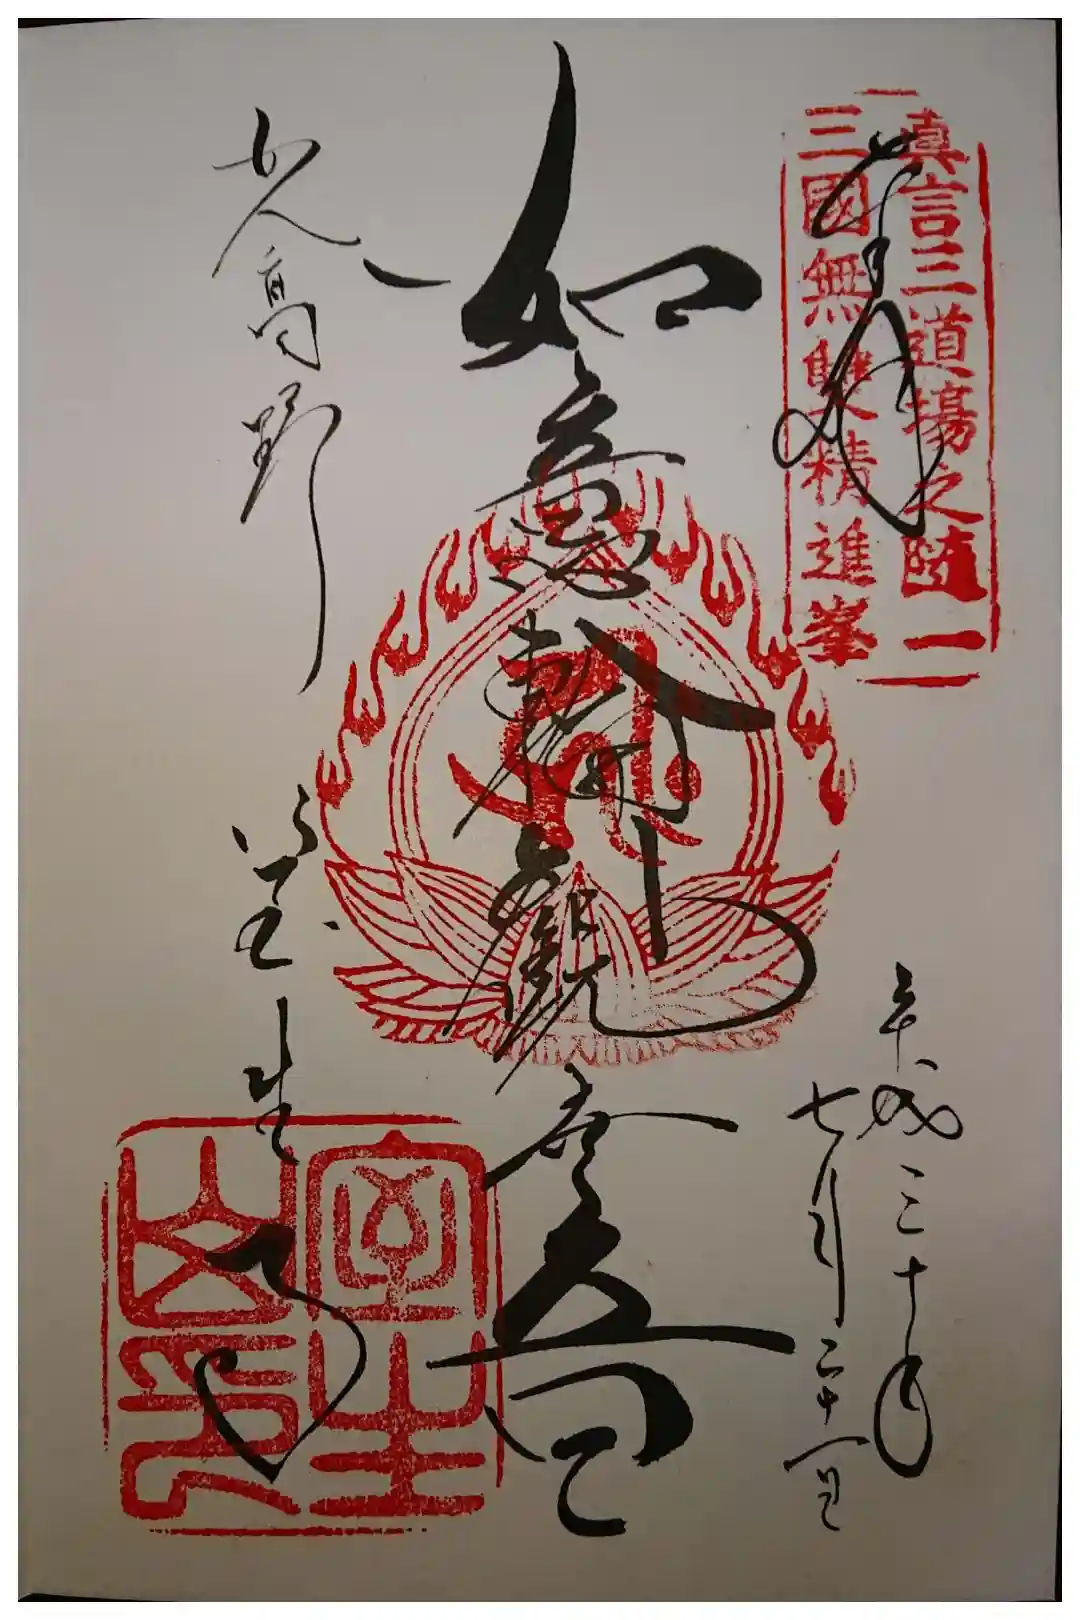 眞言三道場之随一
三國無雙精進峯
奉拝
平成三十年
七月二十一日
如意輪観世音
女人高野
室生寺
室生
山印